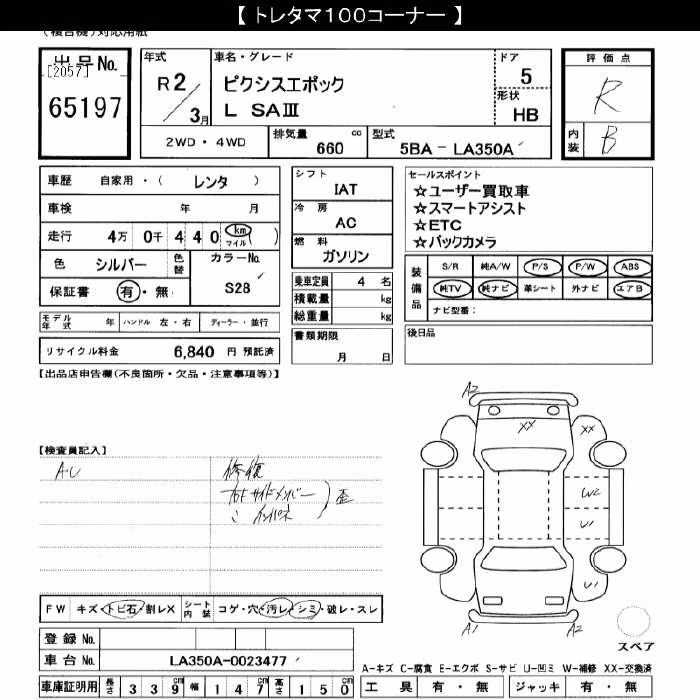 【 トレタマ100コーナー 】
(複合機)対応用紙
出品No.
[2057]
65197
年式
R2/3月
車名・グレード
ピクシスエポック
L SAⅢ
ドア
5
形状
HB
2WD・4WD
排気量 660 cc
型式 5BA - LA350A
評価点
R
内装
B
車歴 自家用・( レンタ )
車検 年 月
走行 4万 0千 4 4 0 km マイル ( )
色 シルバー 色替
カラーNo. S28
保証書 有・無
モデル年式 年 ハンドル 左・右 ディーラー・並行
リサイクル料金 6,840 円 預託済
シフト
IAT
冷房
AC
燃料
ガソリン
乗車定員 4 名
積載量 kg
総重量 kg
書類期限
月 日
セールスポイント
☆ユーザー買取車
☆スマートアシスト
☆ETC
☆バックカメラ
装備品
S/R 純A/W P/S P/W ABS
純TV 純ナビ 革シート 外ナビ エアB
ナビ型番:
後日品
【出品店申告欄(不良箇所・欠品・注意事項等)】
【検査員記入】
A・U
修復
サイドメンバー
インパネ
歪
A2
XX
XX
W2
U1
U1
A1
A2
スペア
FW キズ・トビ石・割レX
シート内装 コゲ・穴・汚レ・シミ・破レ・スレ
登録No.
車台No. LA350A-0023477
車庫証明用 長さ 339cm 幅 147cm 高さ 150cm
A-キズ C-腐食 E-エクボ S-サビ U-凹ミ W-補修 XX-交換済
工具 有・無 ジャッキ 有・無